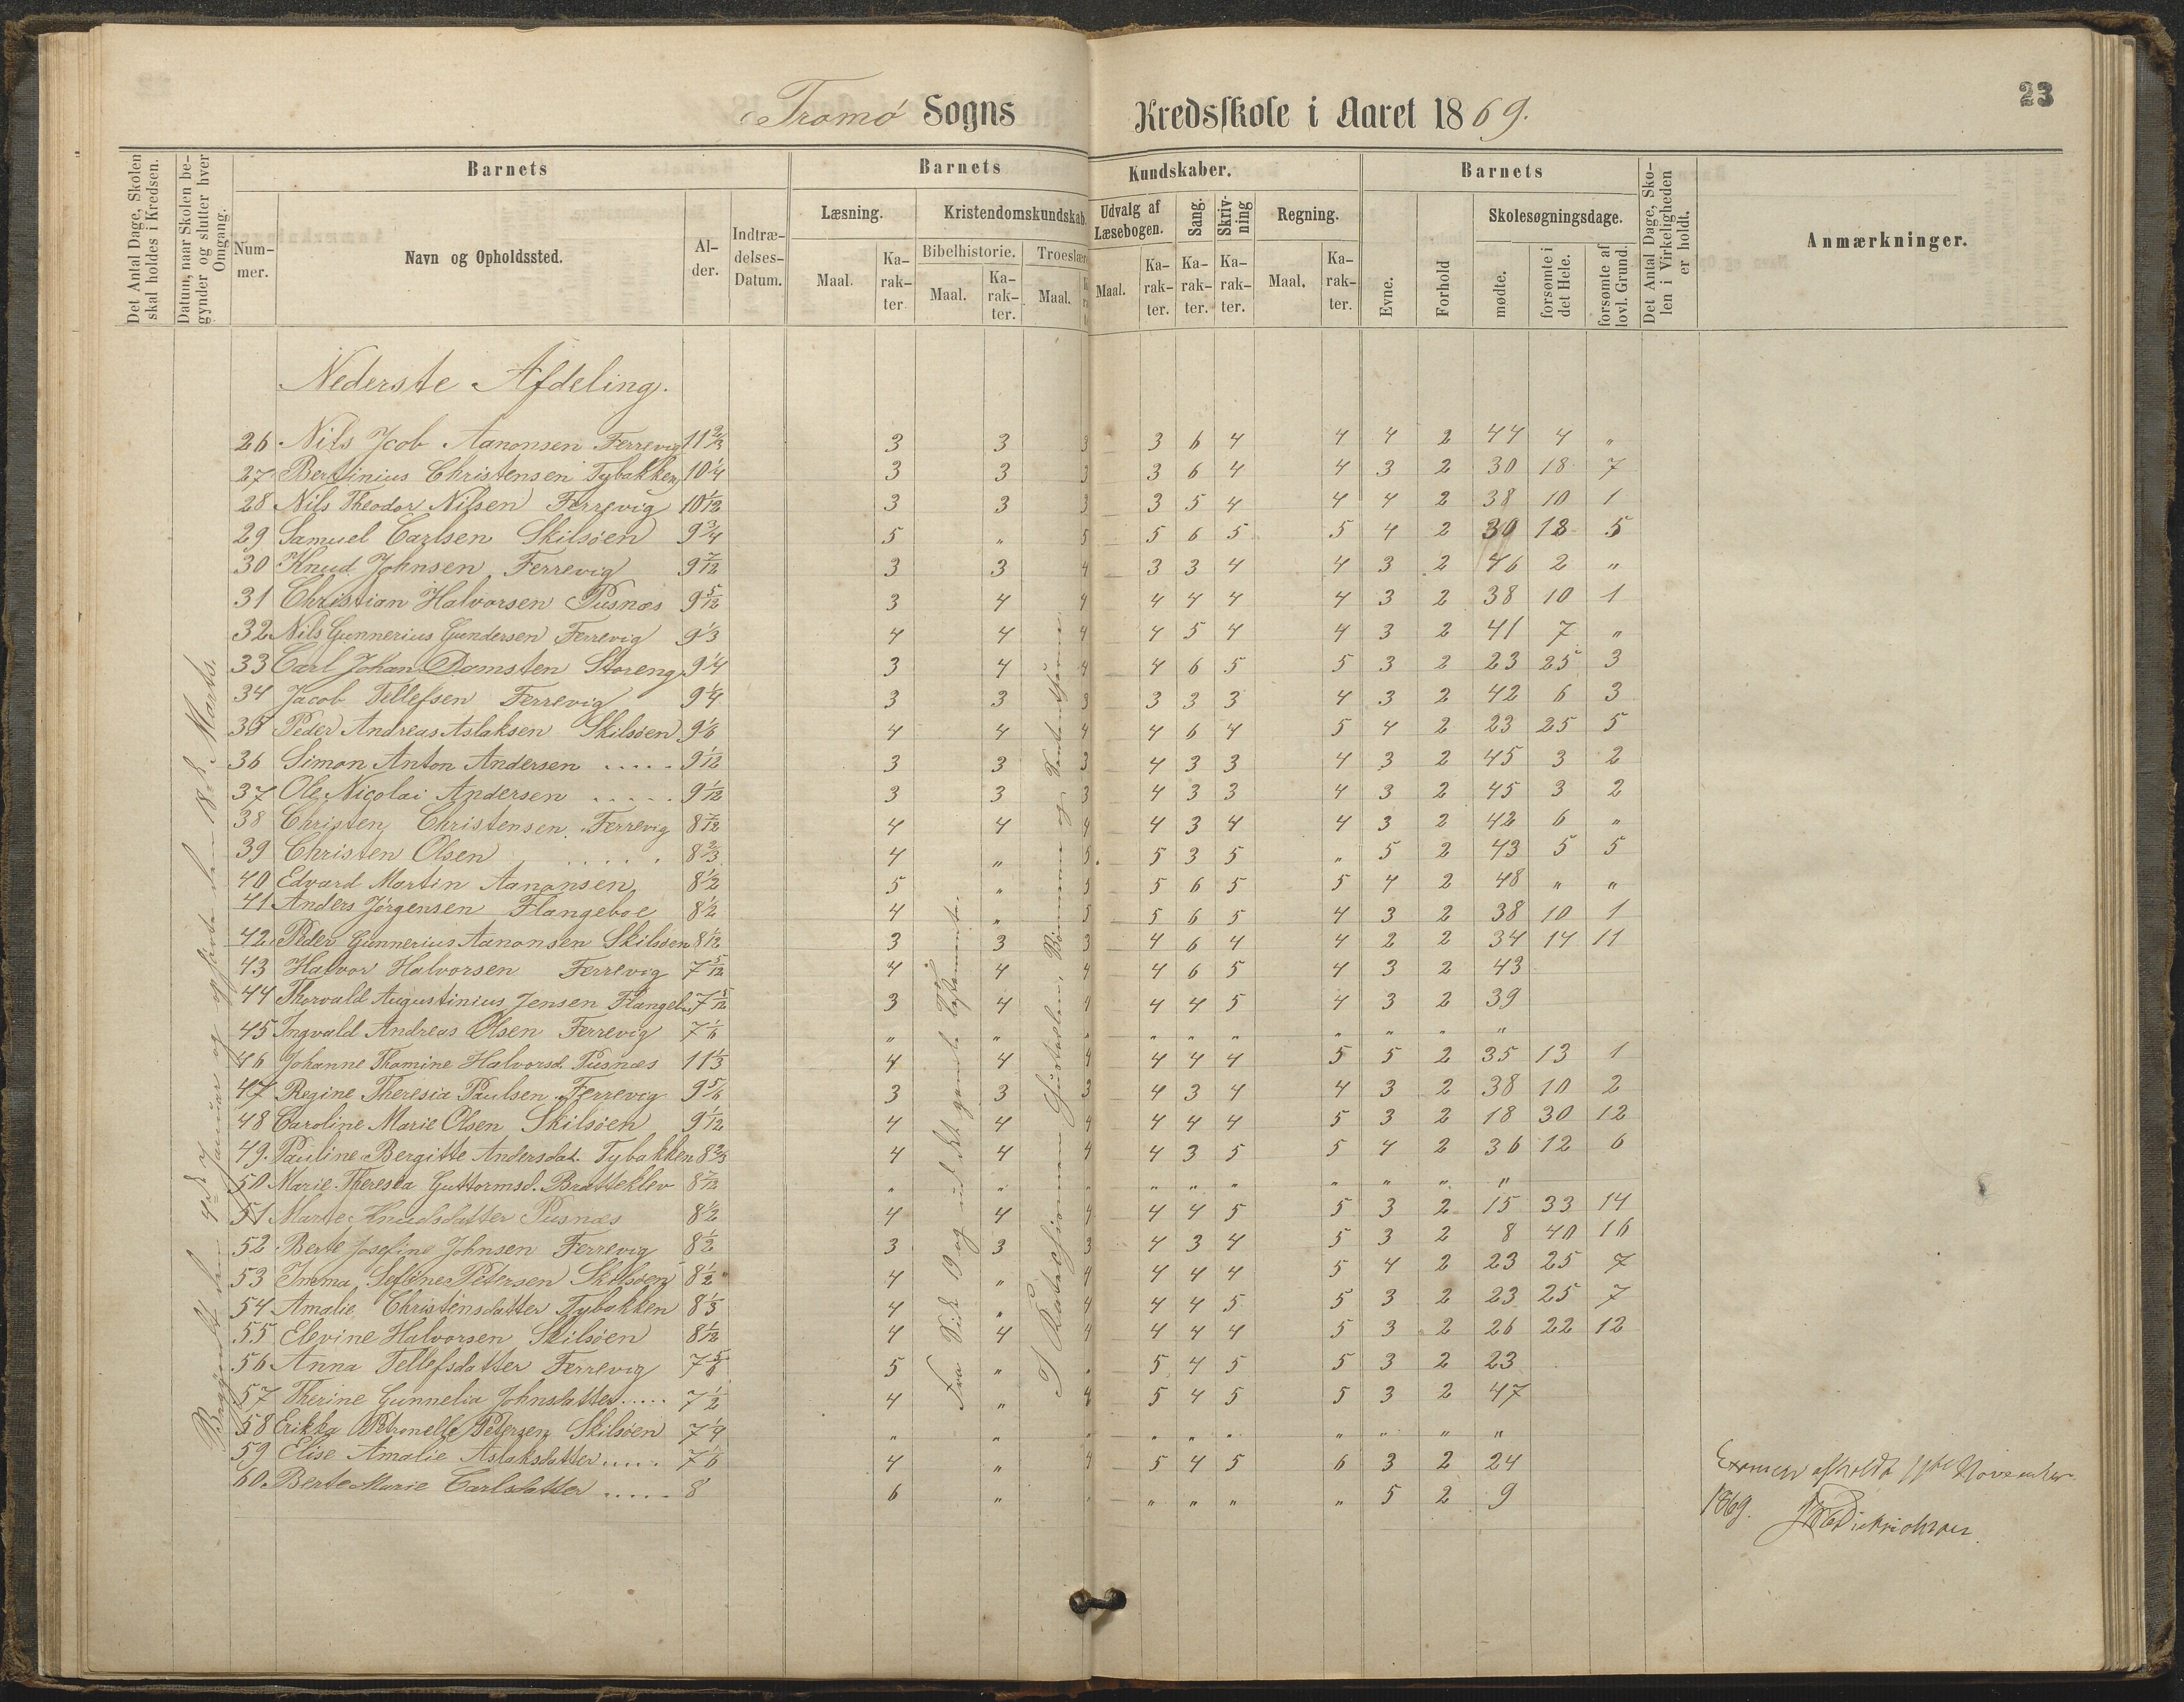 23
Tromø Sogns Kredsskole i Aaret 1869.
Det Antal Dage, Skolen skal holdes i Kredsen.
Datum, naar Skolen begynder og slutter hver Omgang.
Barnets
Nummer.
Navn og Opholdssted.
Alder.
Indtrædelses-Datum.
Barnets Kundskaber.
Læsning.
Maal.
Karakter.
Kristendomskundskab.
Bibelhistorie.
Maal.
Karakter.
Troeslære
Maal.
Udvalg af Læsebogen.
Maal.
Karakter.
Sang.
Karakter.
Skrivning
Karakter.
Regning.
Maal.
Karakter.
Barnets
Evne.
Forhold
Skolesøgningsdage.
mødte.
forsømte i det Hele.
forsømte af lovl. Grund.
Det Antal Dage, Skolen i Virkeligheden er holdt.
Anmærkninger.
Nederste Afdeling.
26 Nils Jcob Aanonsen Ferrevig 11 2/3 3 3 3 3 6 4 4 4 2 44 4 "
27 Bertinius Christensen Tybakken 10 1/4 3 3 3 3 6 4 4 3 2 30 18 7
28 Nils Theodor Nilsen Ferrevig 10 1/12 3 3 3 3 5 4 4 4 2 38 10 1
29 Samuel Carlsen Skilsöen 9 3/4 5 " 5 5 6 5 5 4 2 30 18 5
30 Knud Johnsen Ferrevig 9 7/12 3 3 4 3 3 4 4 3 2 46 2 "
31 Christian Halvorsen Pusnæs 9 5/12 3 4 4 4 4 4 4 3 2 38 10 1
32 Nils Gunnerius Gundersen Ferrevig 9 1/3 4 4 4 4 5 4 4 3 2 41 7 "
33 Carl Johan Damsten Storeng 9 1/4 3 4 4 4 6 5 5 3 2 23 25 3
34 Jacob Tellefsen Ferrevig 9 1/4 3 3 3 3 3 3 4 3 2 42 6 3
35 Peder Andreas Aslaksen Skilsöen 9 1/6 4 4 4 4 6 4 5 4 2 23 25 5
36 Simon Anton Andersen ..... 9 1/12 3 3 3 4 3 3 4 3 2 45 3 2
37 Ole Nicolai Andersen ..... 9 1/12 3 3 3 4 3 3 4 3 2 45 3 2
38 Christen Christensen Ferrevig 8 7/12 4 4 4 4 3 4 4 3 2 42 6 "
39 Christen Olsen ..... 8 2/3 4 " 5 5 3 5 " 5 2 43 5 5
40 Edvard Martin Aanonsen 8 1/2 5 " 5 5 6 5 5 4 2 48 " "
41 Anders Jörgensen Flangeboe 8 1/2 4 " 5 5 6 5 4 3 2 38 10 1
42 Peder Gunnerius Aanonsen Skilsöen 8 1/12 3 3 3 4 6 4 4 2 2 34 14 11
43 Halvor Halvorsen Ferrevig 7 5/12 4 4 4 4 6 5 4 3 2 43
44 Thorvald Augustinius Jensen Flangeb. 7 5/12 3 4 4 4 4 5 4 3 2 39
45 Ingvald Andreas Olsen Ferrevig 7 1/6 " " " " " " " " " "
46 Johanne Thomine Halvorsd. Pusnæs 11 1/3 4 4 4 4 4 4 5 5 2 35 13 1
47 Regine Theresia Paulsen Ferrevig 9 5/6 3 3 3 4 3 4 4 3 2 38 10 2
48 Caroline Marie Olsen Skilsöen 9 1/12 4 4 4 4 4 4 5 3 2 18 30 12
49. Pauline Bergitte Andersdat. Tybakken 8 2/3 4 4 4 4 3 5 5 4 2 36 12 6
50 Marie Theresea Guttormsd. Bratteklev 8 7/12 " " " " " " " " "
51 Marte Knudsdatter Pusnæs 8 1/2 4 4 4 4 4 5 5 3 2 15 33 14
52 Berte Josefine Johnsen Ferrevig 8 1/2 3 3 3 4 3 4 5 3 2 8 40 16
53 Imma Sefine Petersen Skilsöen 8 1/2 4 " 4 4 4 4 5 4 2 23 25 7
54 Amalie Christensdatter Tybakken 8 1/3 4 " 4 4 4 5 5 3 2 23 25 7
55 Elevine Halvorsen Skilsöen 8 1/12 4 4 4 4 4 4 5 3 2 26 22 12
56 Anna Tellefsdatter Ferrevig 7 5/6 5 " " 5 4 5 5 3 2 23
57 Therine Gunnelia Johnsdatter ..... 7 1/2 4 " 4 5 4 5 5 3 2 47
58 Erikka Petronelle Petersen Skilsöen 7 1/4 " " " " " " " " " "
59 Elise Amalie Aslaksdatter ..... 7 1/6 4 " 4 5 4 5 6 3 2 24
60. Berte Marie Carlsdatter ..... 8 6 " " " " " " 5 2 9
Begyndt den 4de Januar og sluttede den 18de Marts.
Fra Side 19 og ud det gamle Testamente.
I Katechismen Hustavlen, Bönnerne og
Examen afholdt 11te November
1869.